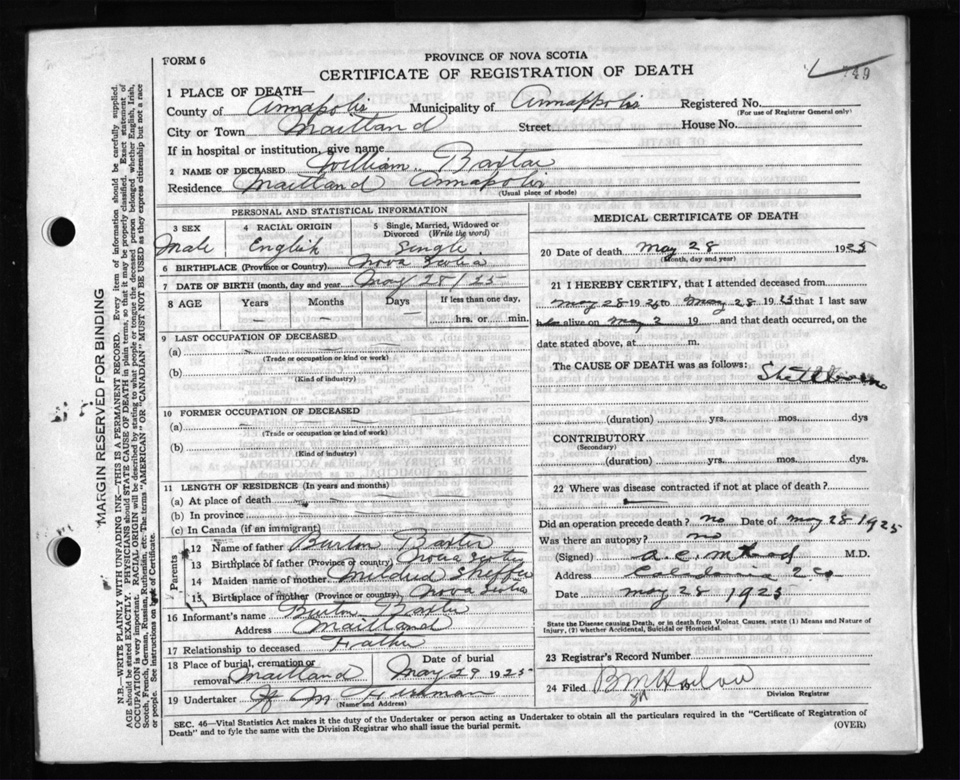 FORM 6
PROVINCE OF NOVA SCOTIA
749
CERTIFICATE OF REGISTRATION OF DEATH
1 PLACE OF DEATH—
County of Annapolis Municipality of Annappolis Registered No.
(For use of Registrar General only)
City or Town Maitland Street House No.
If in hospital or institution, give name
2 NAME OF DECEASED William Baxter
Residence Maitland Annapolis
(Usual place of abode)
PERSONAL AND STATISTICAL INFORMATION
3 SEX 4 RACIAL ORIGIN 5 Single, Married, Widowed or Divorced (Write the word)
Male English Single
6 BIRTHPLACE (Province or Country) Nova Scotia
7 DATE OF BIRTH (month, day and year) May 28/25
8 AGE Years Months Days If less than one day,
— — — hrs. or min.
9 LAST OCCUPATION OF DECEASED
(a)
(Trade or occupation or kind of work)
(b)
(Kind of industry)
10 FORMER OCCUPATION OF DECEASED
(a)
(Trade or occupation or kind of work)
(b)
(Kind of industry)
11 LENGTH OF RESIDENCE (In years and months)
(a) At place of death
(b) In province
(c) In Canada (if an immigrant)
Parents
12 Name of father Burton Baxter
13 Birthplace of father (Province or country) Nova Scotia
14 Maiden name of mother Mildred
15 Birthplace of mother (Province or country) Nova Scotia
16 Informant's name Burton Baxter
Address Maitland
17 Relationship to deceased Father
18 Place of burial, cremation or removal Maitland Date of burial May 29 1925
19 Undertaker
(Name and Address)
MEDICAL CERTIFICATE OF DEATH
20 Date of death May 28 1925
(Month, day and year)
21 I HEREBY CERTIFY, that I attended deceased from
May 28 1925 to May 28 1925 that I last saw
alive on May 2 19 and that death occurred, on
the date stated above, at m.
The CAUSE OF DEATH was as follows: Stillborn
(duration) yrs. mos. dys
CONTRIBUTORY
(Secondary)
(duration) yrs. mos. dys.
22 Where was disease contracted if not at place of death?
Did an operation precede death? no Date of May 28 1925
Was there an autopsy? no
(Signed) M.D.
Address Caledonia
Date May 28 1925
State the Disease causing Death, or in death from Violent Causes, state (1) Means and Nature of Injury, (2) whether Accidental, Suicidal or Homicidal.
23 Registrar's Record Number
24 Filed
Division Registrar
SEC. 46—Vital Statistics Act makes it the duty of the Undertaker or person acting as Undertaker to obtain all the particulars required in the "Certificate of Registration of
Death" and to fyle the same with the Division Registrar who shall issue the burial permit.
(OVER)
MARGIN RESERVED FOR BINDING
N.B.—WRITE PLAINLY WITH UNFADING INK—THIS IS A PERMANENT RECORD. Every item of information should be carefully supplied.
AGE should be stated EXACTLY. PHYSICIANS should STATE CAUSE OF DEATH in plain terms, so that it may be properly classified. Exact statement of
OCCUPATION is very important. RACIAL ORIGIN will be described by stating to what people or tongue the deceased person belonged whether English, Irish,
Scotch, French, German, Russian, Ruthenian, etc. The terms "AMERICAN" OR "CANADIAN" MUST NOT BE USED as they express citizenship but not a race
or people. See instructions on back of Certificate.